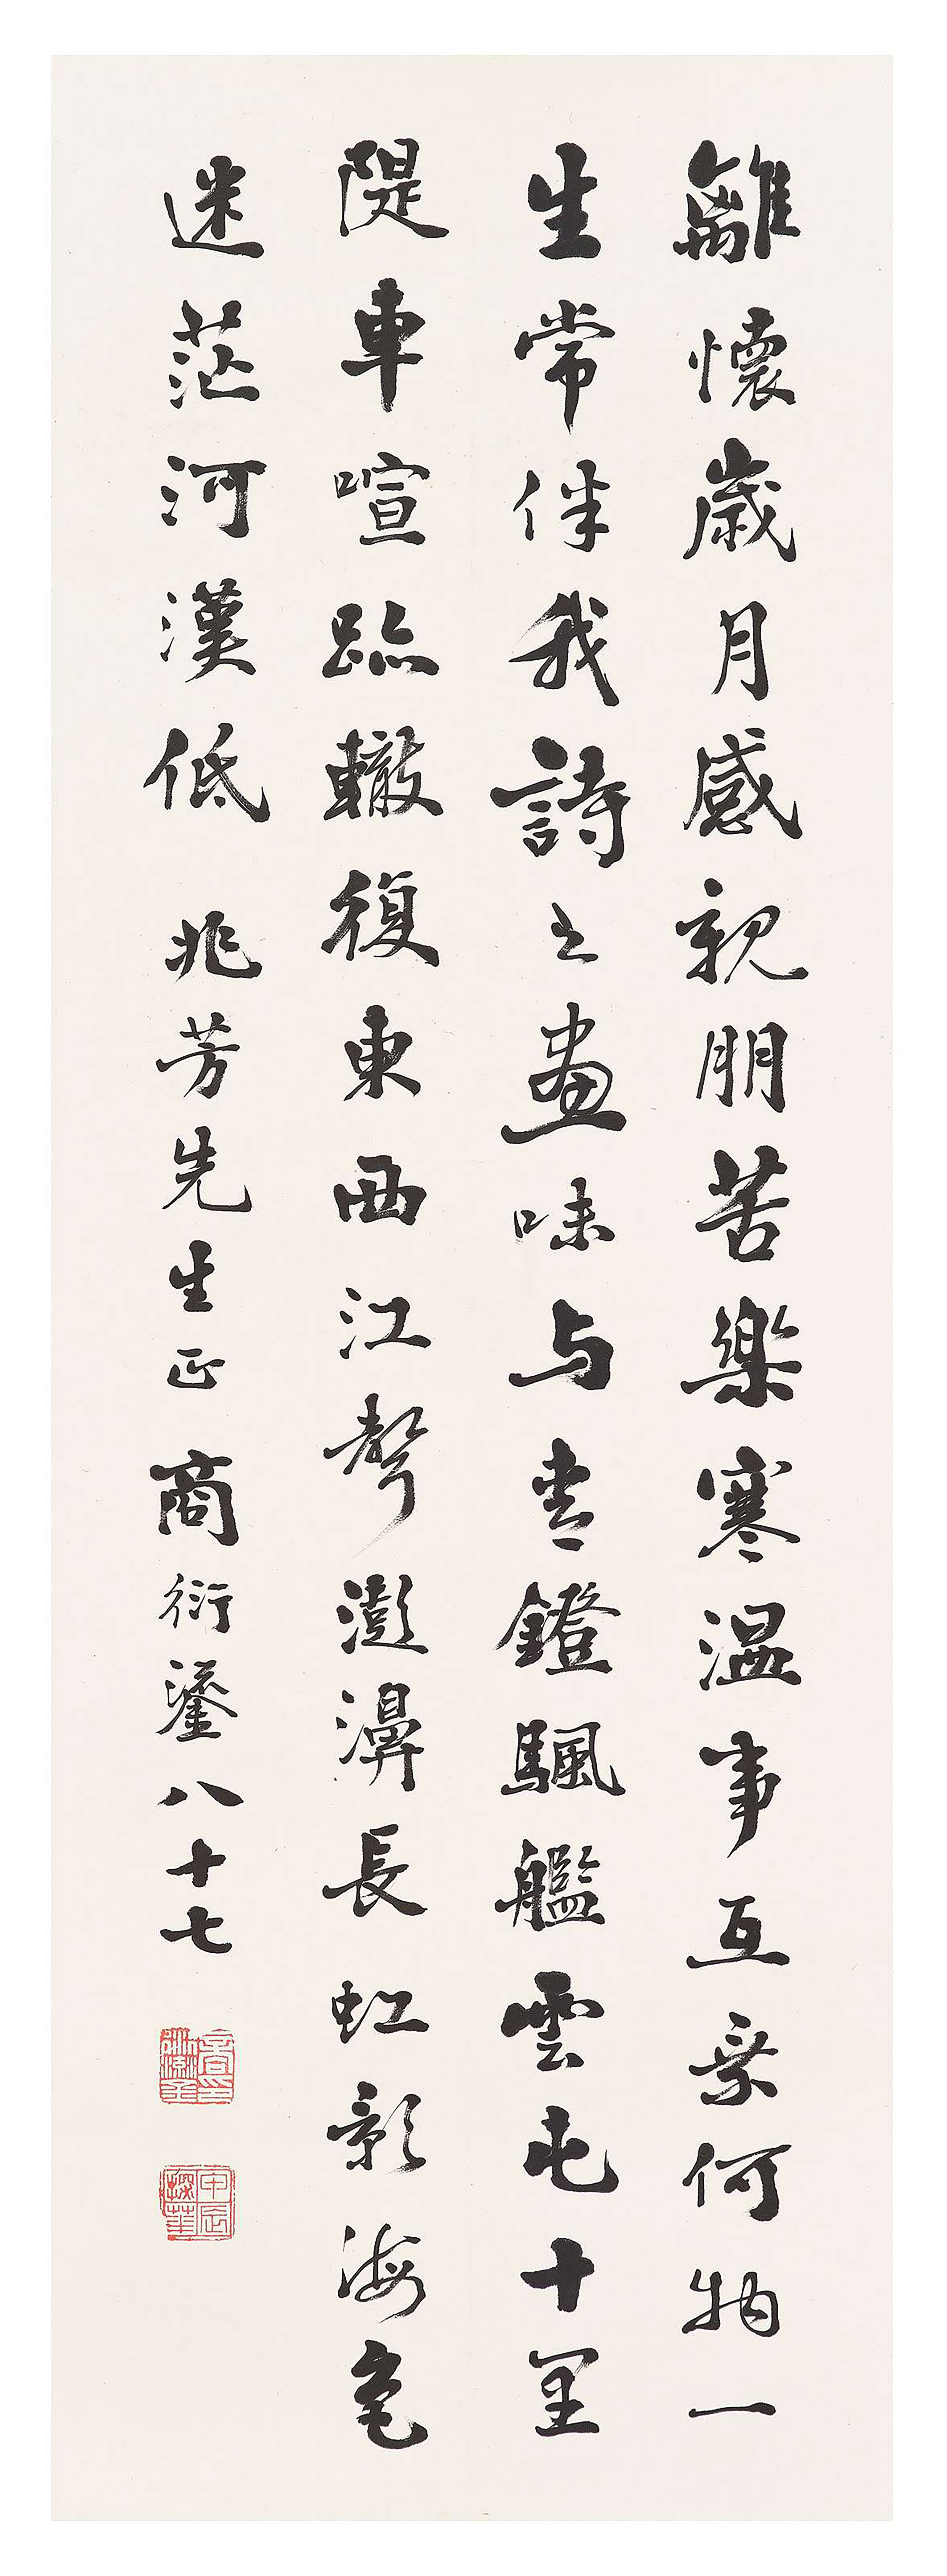 離懷歲月感親朋苦樂寒溫事互乘何物一
生常伴我詩之畫味与書鐙颿艦雲屯十里
隄車喧跡轍復東西江聲澎濞長虹影海色
迷茫河漢低 兆芳先生正 商衍鎏八十七
商印衍鎏
甲辰探華